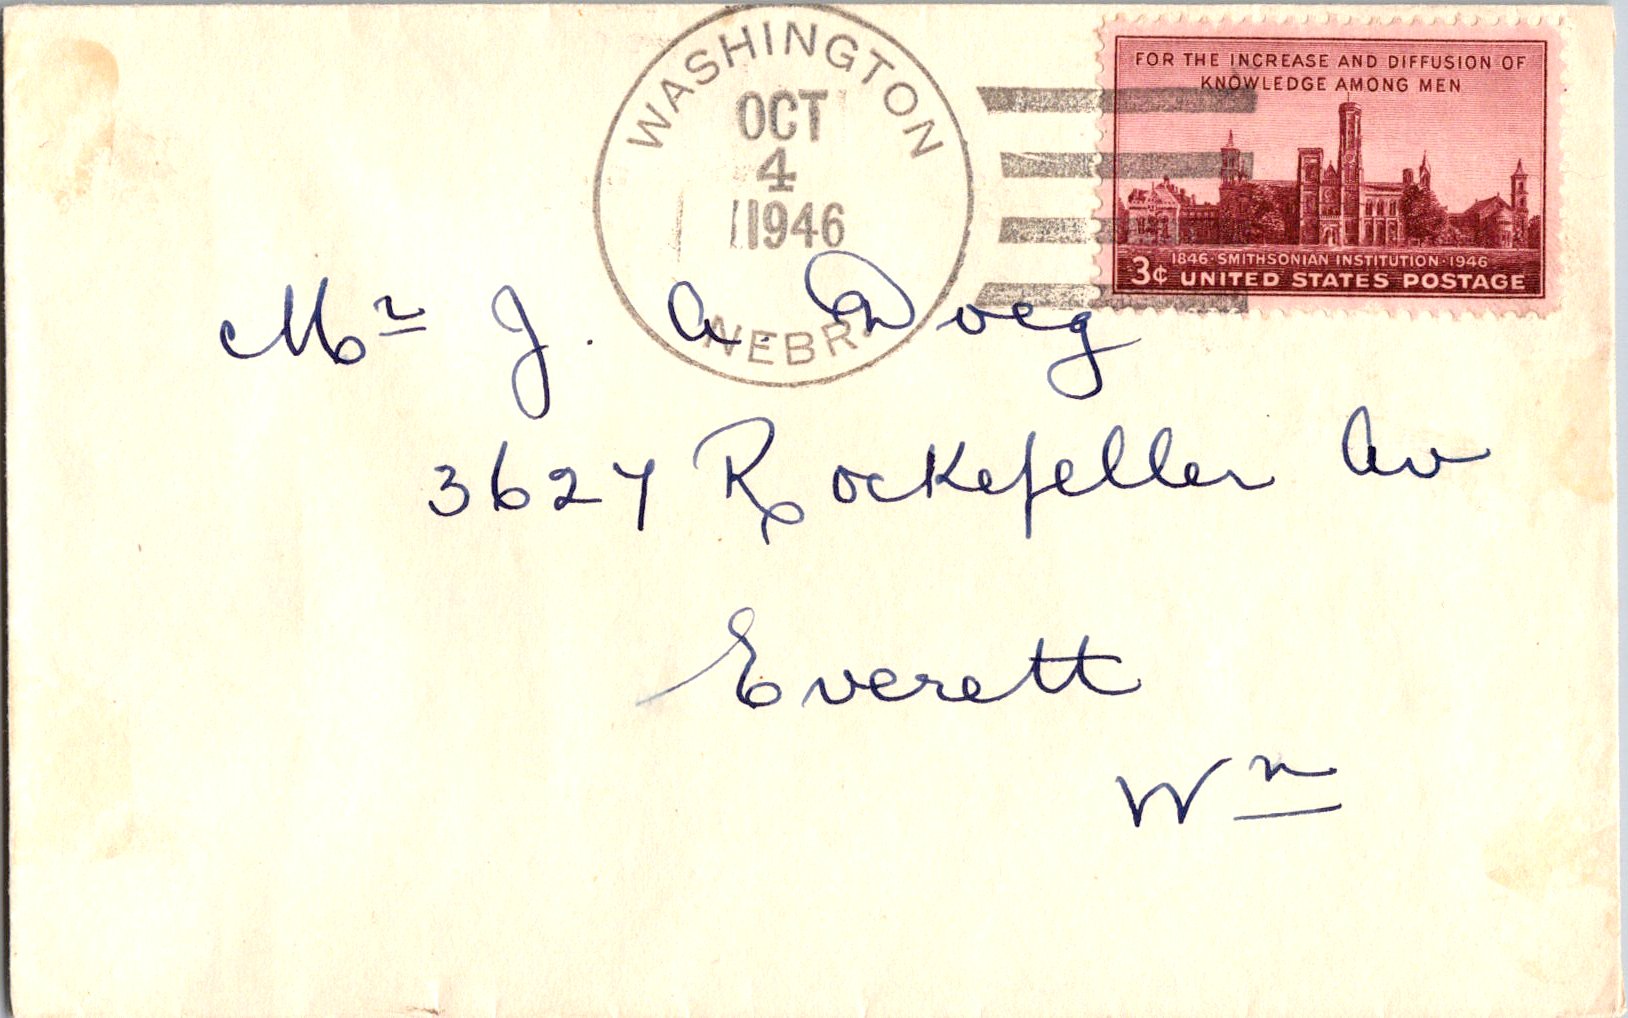 WASHINGTON
OCT
4
1946
NEBR.
FOR THE INCREASE AND DIFFUSION OF
KNOWLEDGE AMONG MEN
1846·SMITHSONIAN INSTITUTION·1946
3¢ UNITED STATES POSTAGE
Mr J. A. Doeg
3627 Rockefeller Av
Everett
Wn